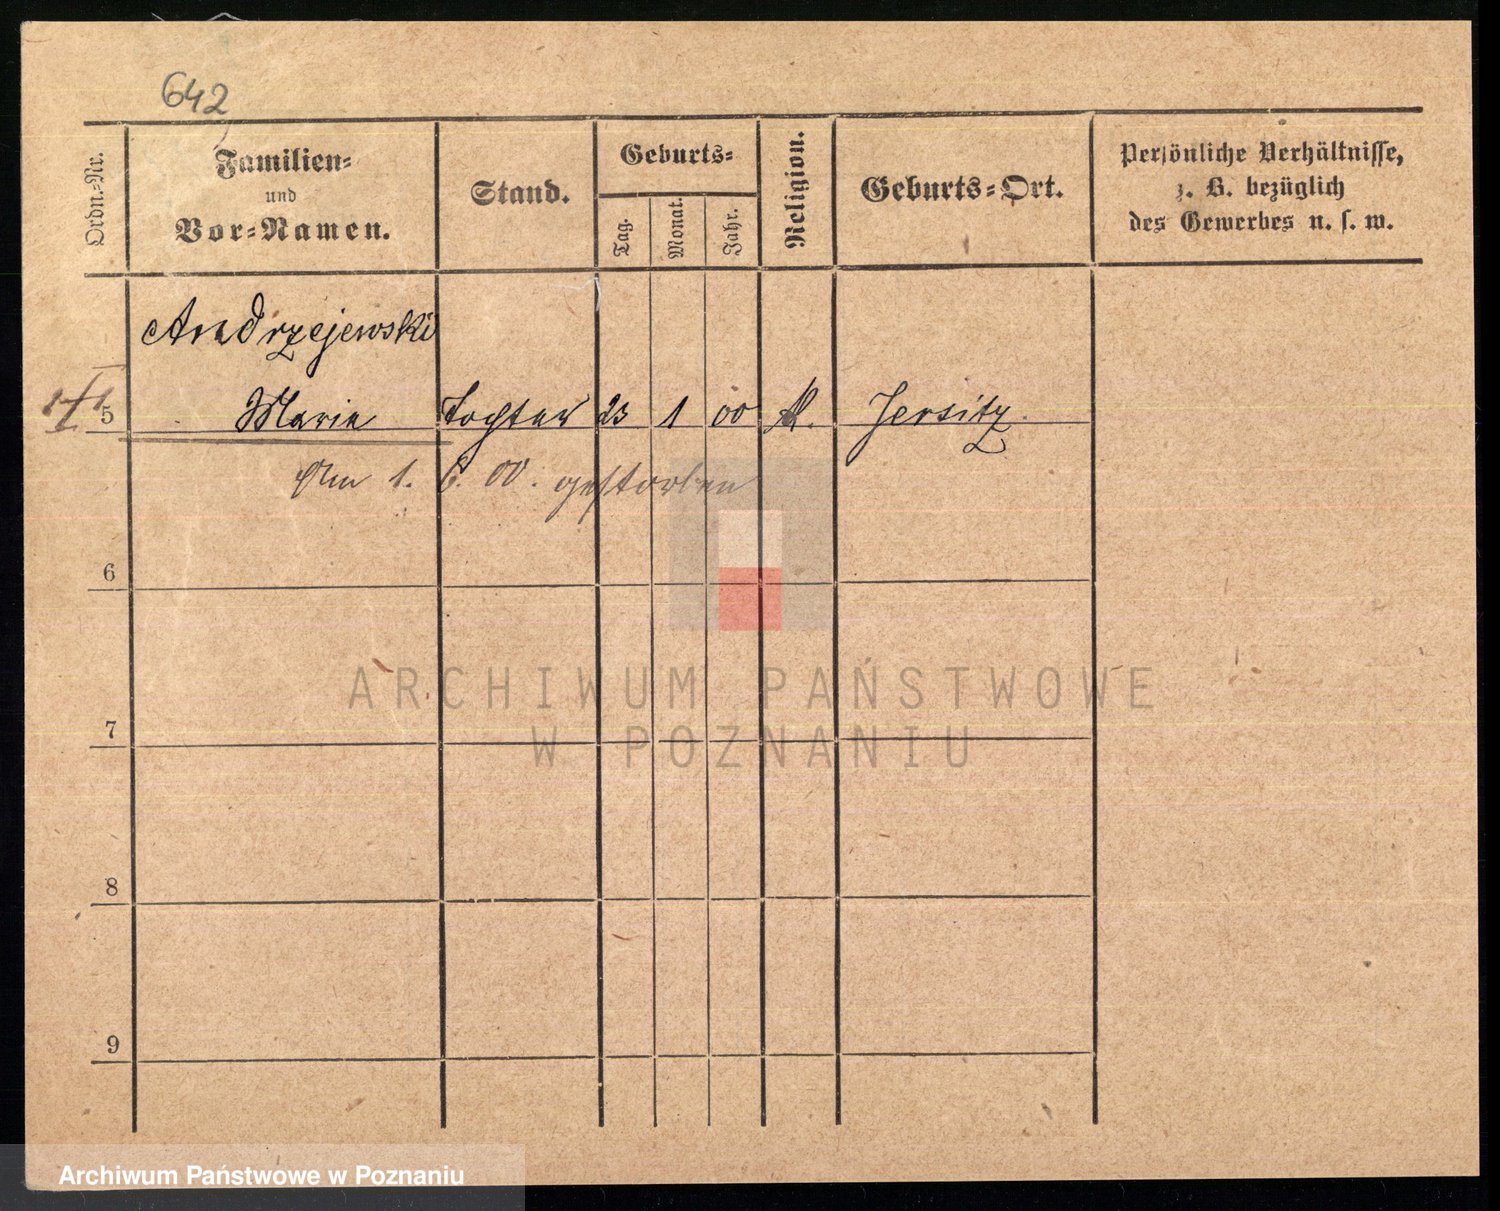 642
Ordn.-Nr.
Familien-
und
Vor-Namen.
Stand.
Geburts-
Tag.
Monat.
Jahr.
Religion.
Geburts-Ort.
Persönliche Verhältnisse,
z. B. bezüglich
des Gewerbes u. s. w.
Andrzejewski
5 Marie Tochter 23 1 00 K. Jersitz
Am 1. 6. 00. gestorben
6
ARCHIWUM PAŃSTWOWE
7
W POZNANIU
8
9
Archiwum Państwowe w Poznaniu